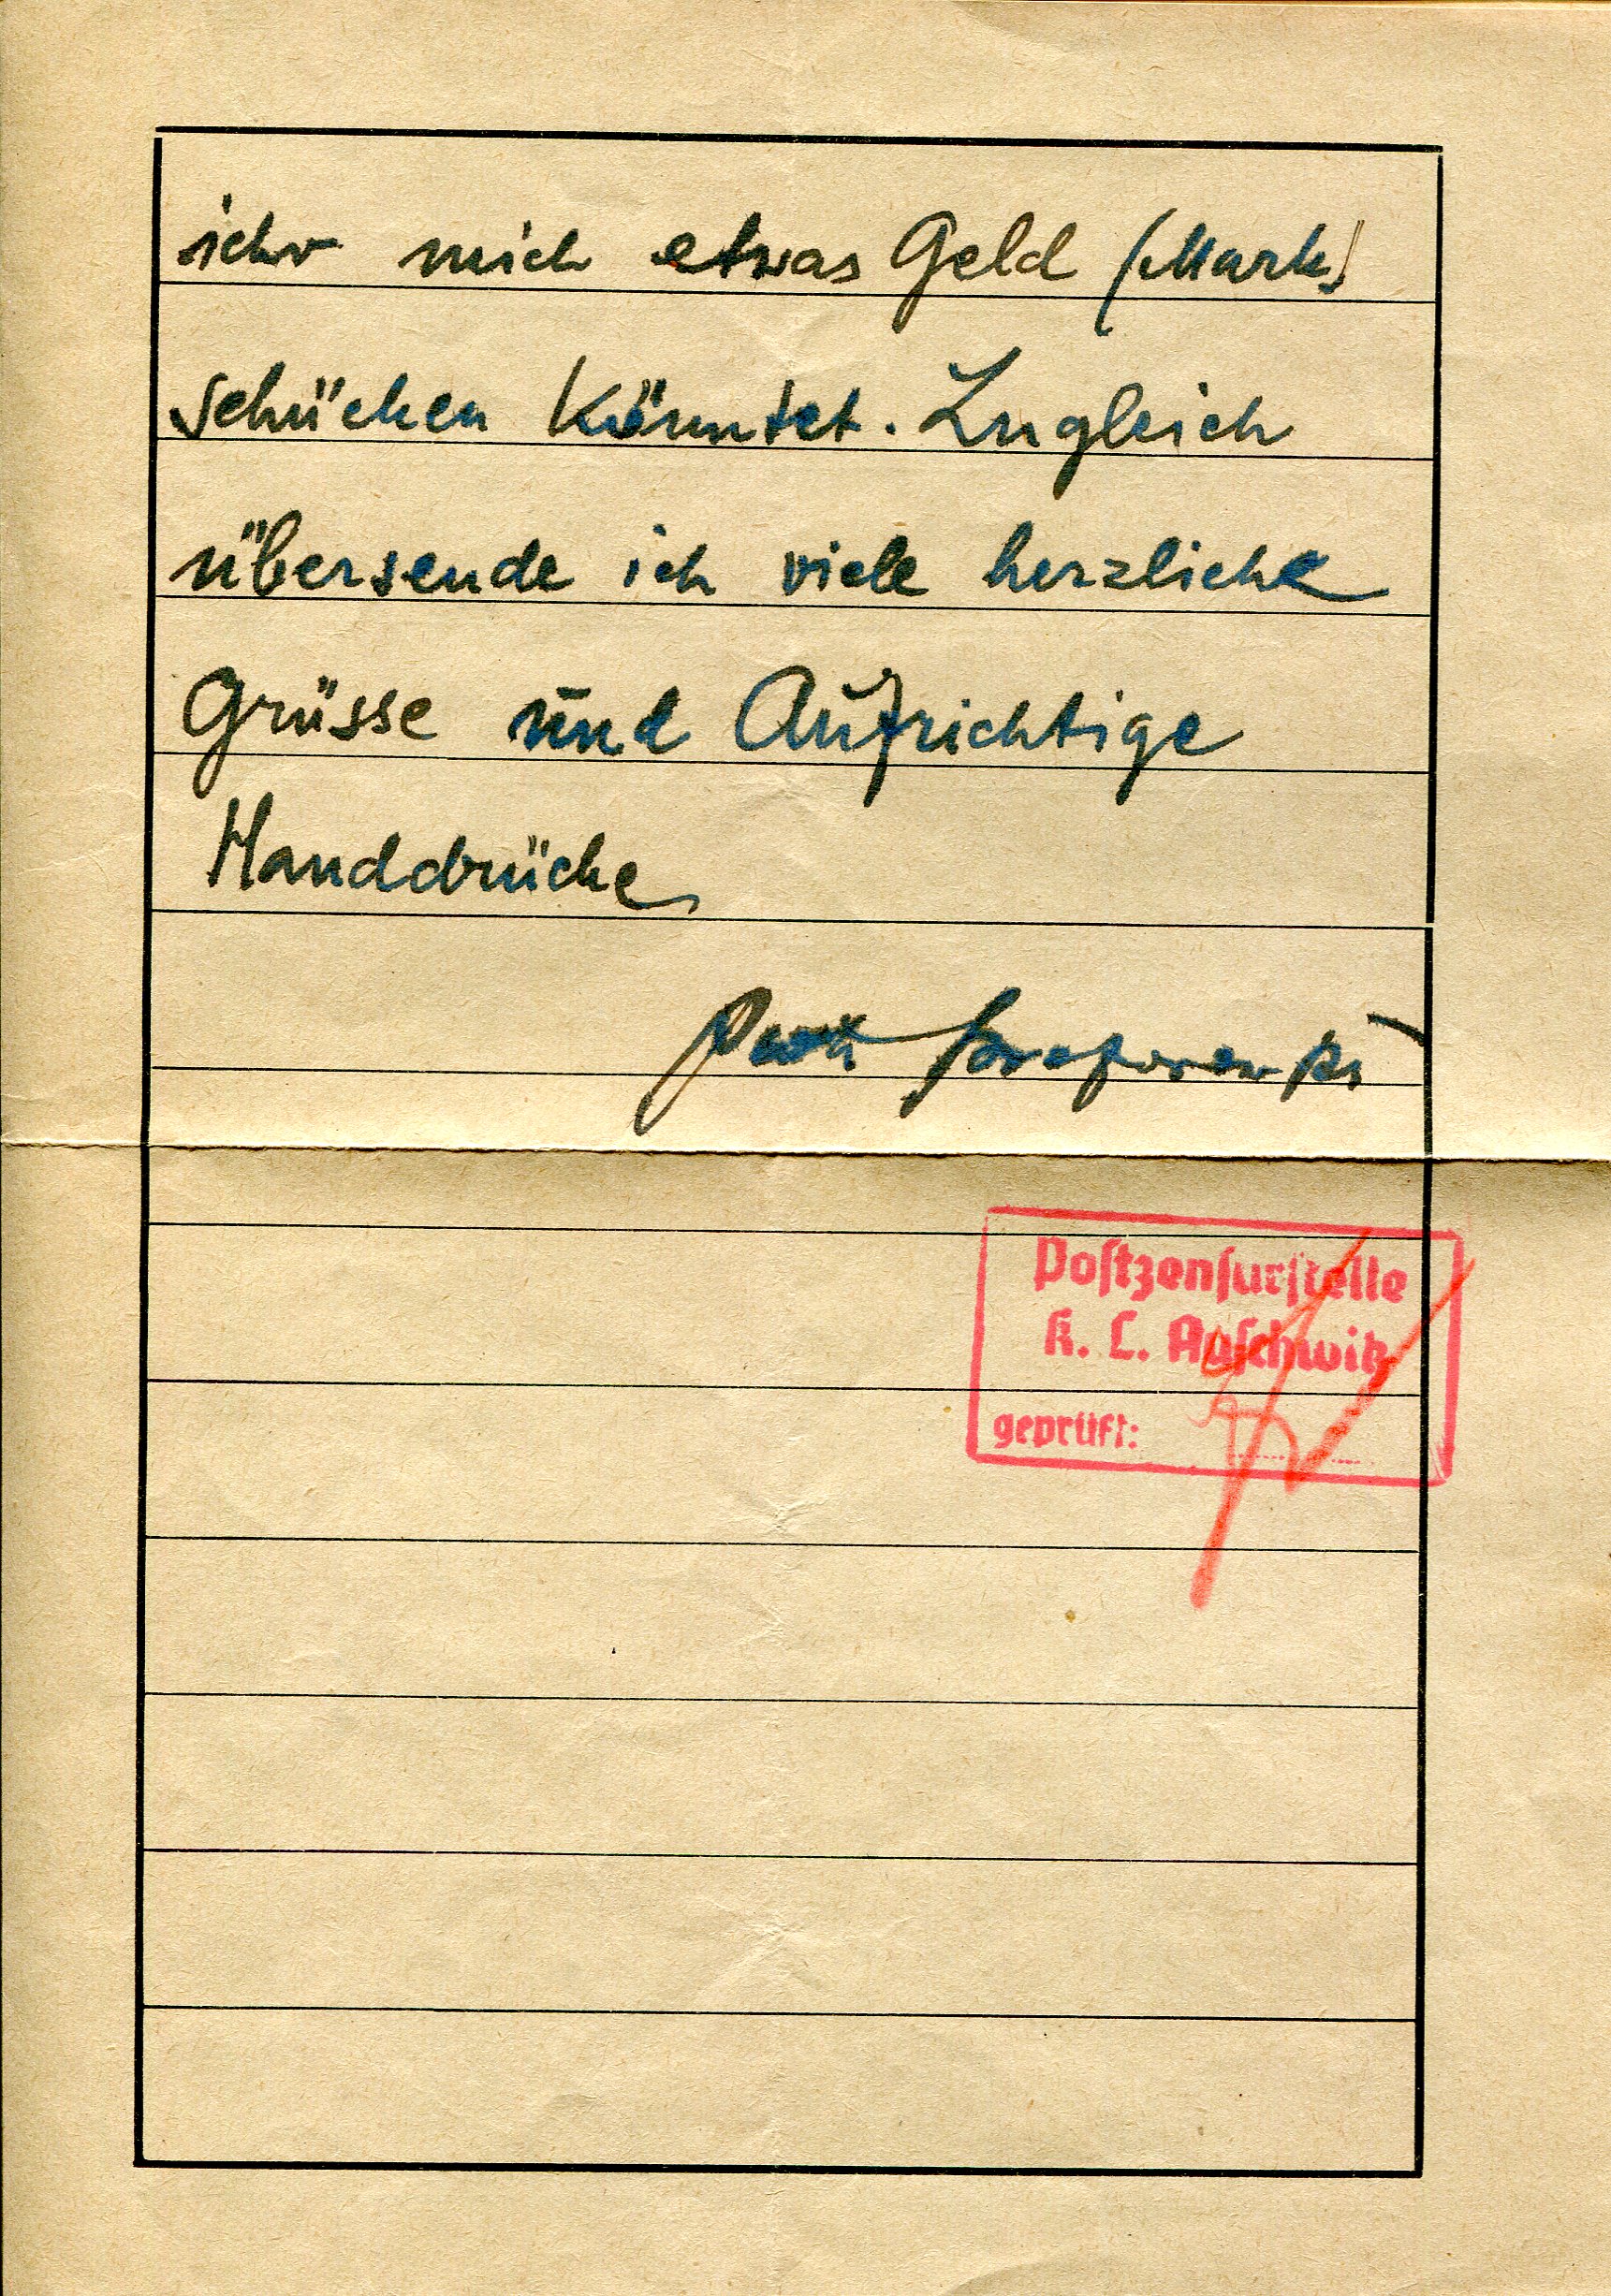 ihr mich etwas Geld (Mark)
schücken könntet. Zugleich
übersende ich viele herzliche
Grüsse und Aufrichtige
Handdrücke
Postzensurstelle
K. L. Auschwitz
geprüft: